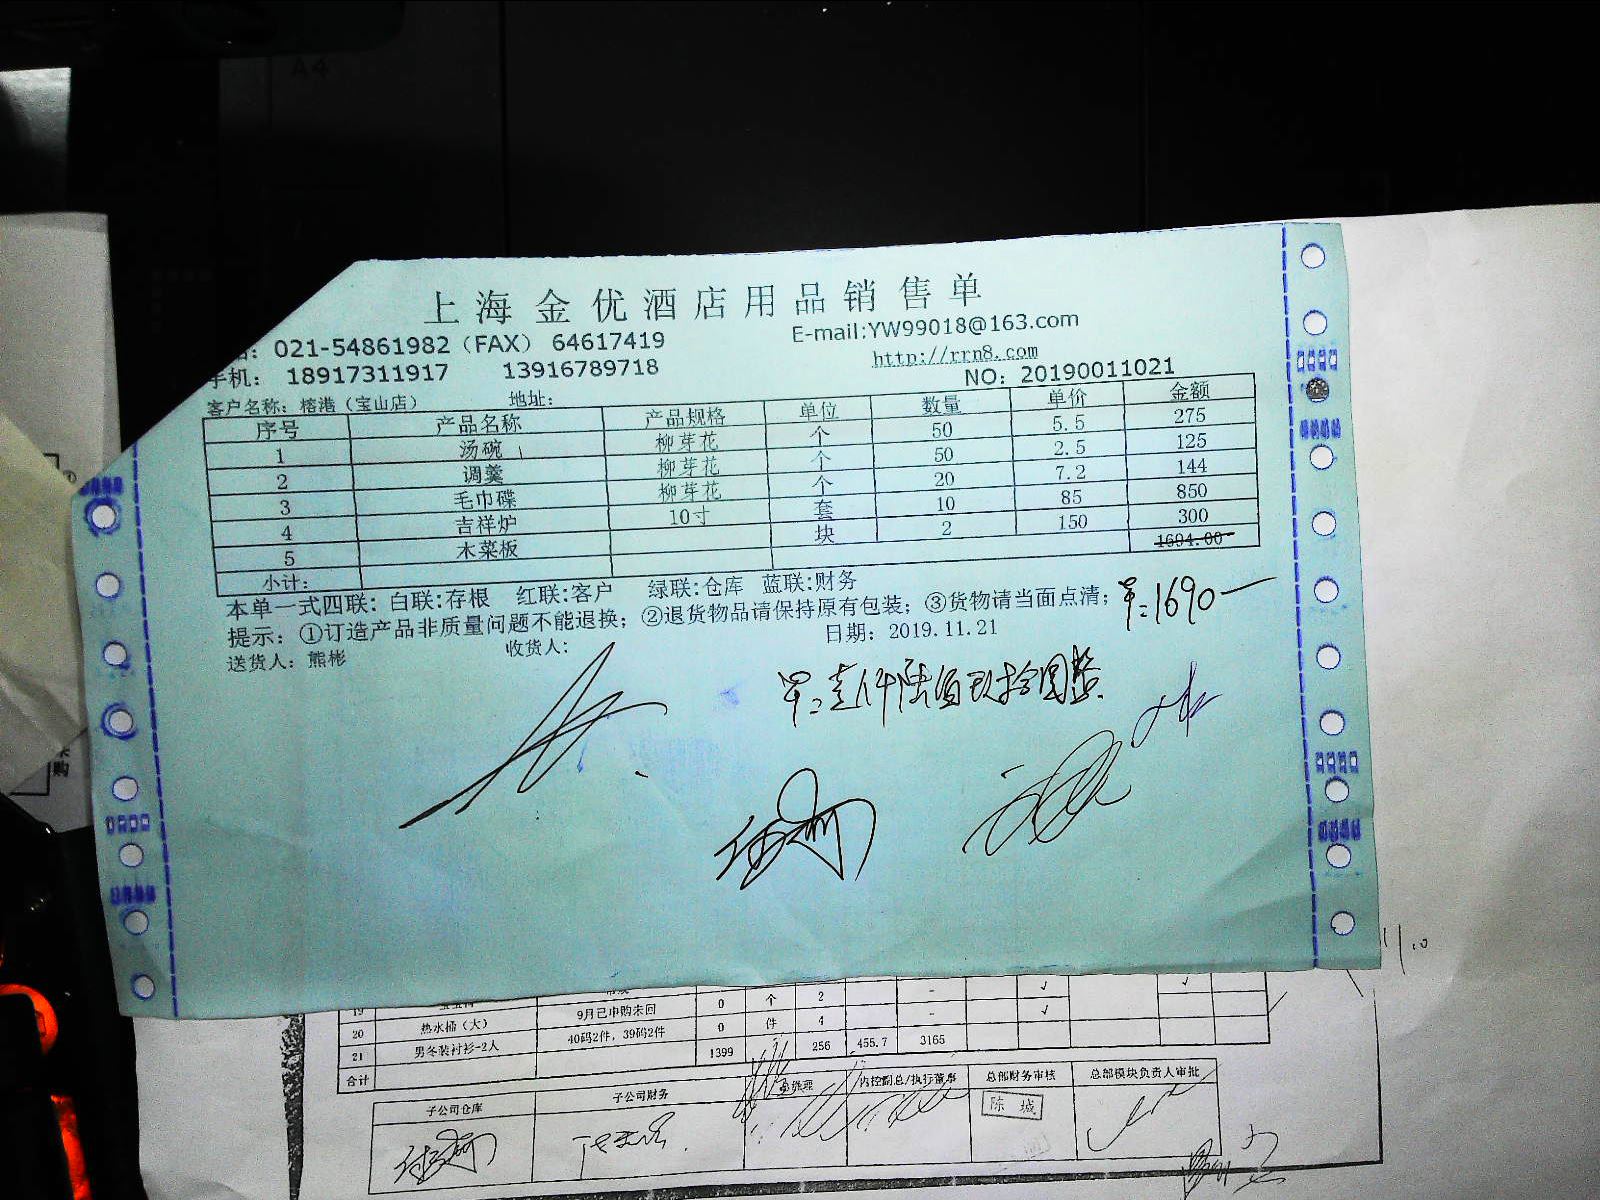 A4
上海金优酒店用品销售单
021-54861982（FAX） 64617419 E-mail:YW99018@163.com
手机： 18917311917 13916789718 http://rrn8.com
NO：20190011021
客户名称：榕港（宝山店） 地址：
序号 产品名称 产品规格 单位 数量 单价 金额
1 汤碗 柳芽花 个 50 5.5 275
2 调羹 柳芽花 个 50 2.5 125
3 毛巾碟 柳芽花 个 20 7.2 144
4 吉祥炉 10寸 套 10 85 850
5 木菜板 块 2 150 300
小计： 1694.00
本单一式四联：白联:存根 红联:客户 绿联:仓库 蓝联:财务
提示：①订造产品非质量问题不能退换；②退货物品请保持原有包装；③货物请当面点清；
1690
送货人：熊彬 收货人： 日期：2019.11.21
壹仟陆佰玖拾圆整
19 0 个 2 - √ √
20 热水桶（大） 9月已申购未回 0 件 4 - √
21 男冬装衬衫-2人 40码2件，39码2件
合计 1399 256 455.7 3165
子公司仓库 子公司财务 总经理 内控副总/执行董事 总部财务审核 总部模块负责人审批
陈城